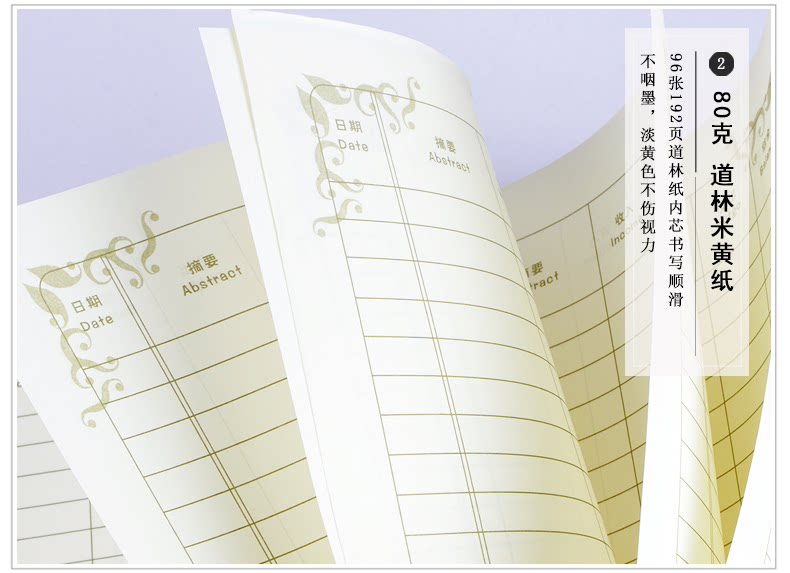 2
80克 道林米黄纸
96张192页道林纸内芯书写顺滑
不咽墨，淡黄色不伤视力
日期
Date
摘要
Abstract
日期
Date
摘要
Abstract
摘要
收入